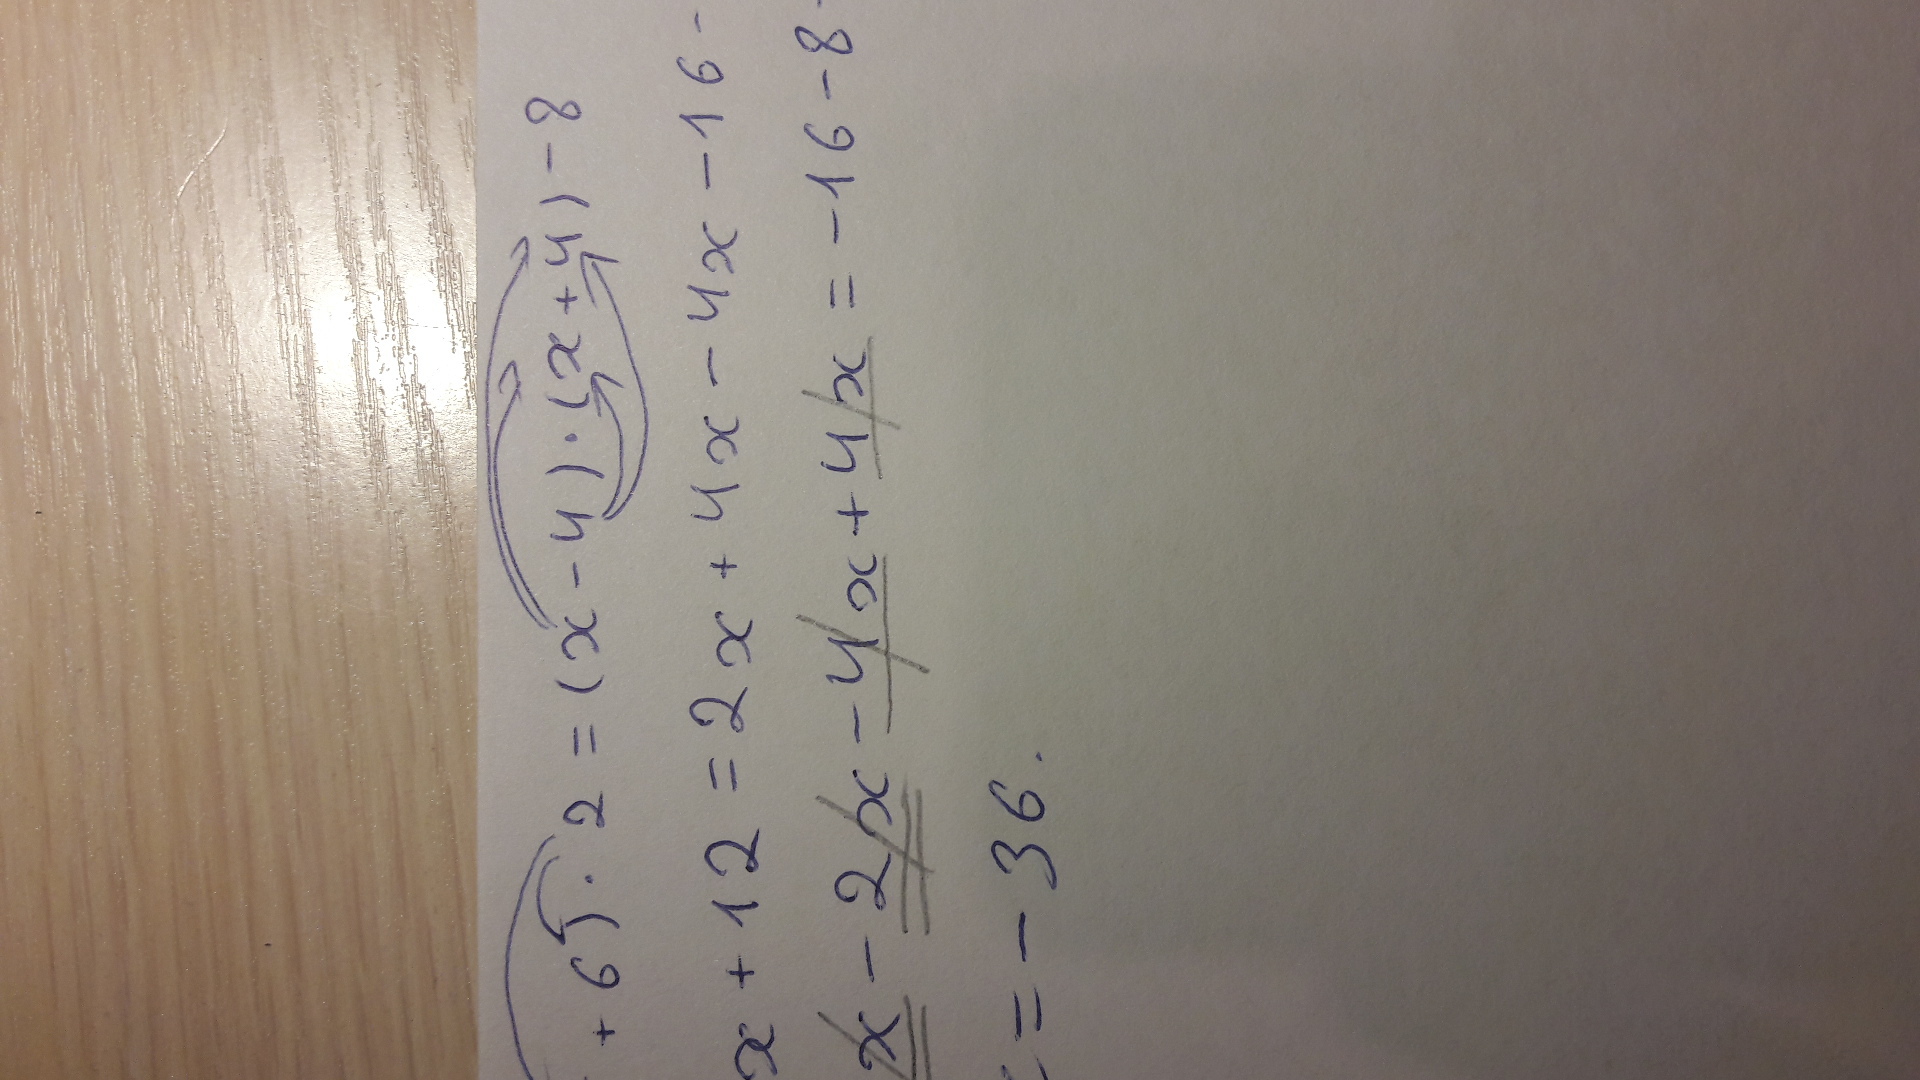 + 6) · 2 = (x - 4) · (x + 4) - 8
x + 12 = 2x + 4x - 4x - 16 -
x - 2x - 4x + 4x = -16 - 8 -
= - 36.